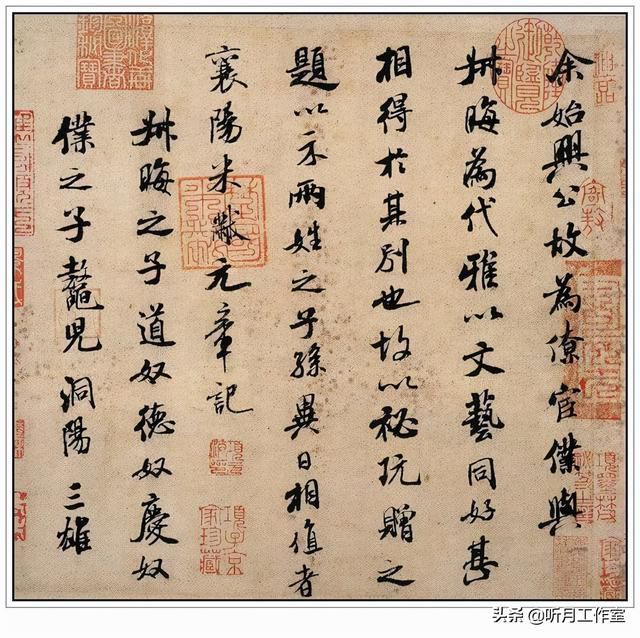 余始興公故為僚宦僕與
叔晦為代雅以文藝同好甚
相得於其別也故以秘玩贈之
題以示兩姓之子孫異日相值者
襄陽米黻元章記
叔晦之子道奴德奴慶奴
僕之子鼇兒洞陽三雄
項子京
家珍藏
头条 @听月工作室